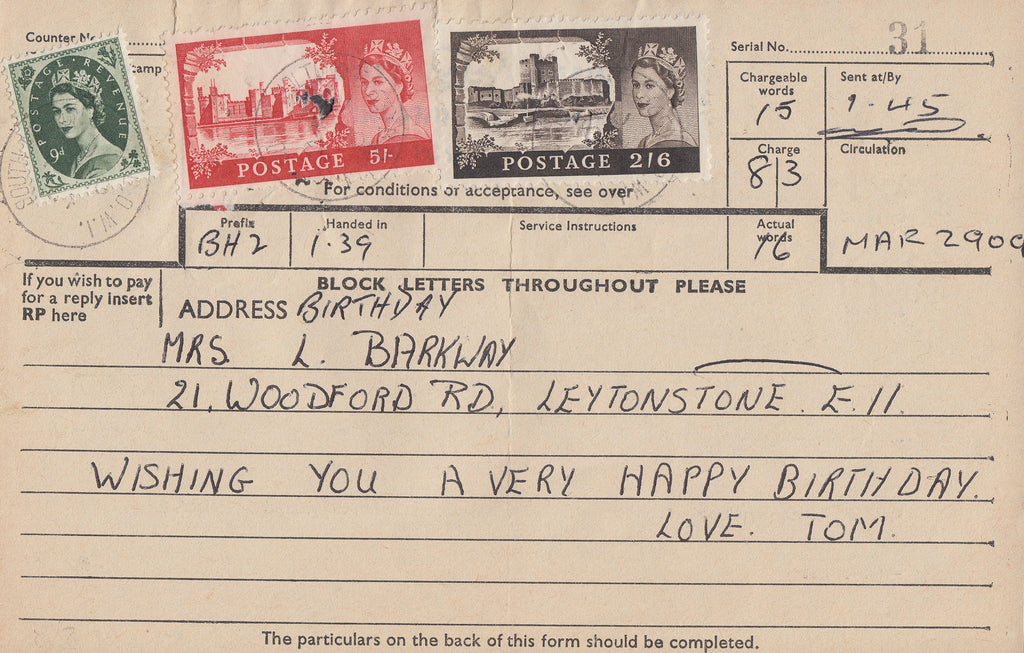 Counter No.
Serial No. 31
POSTAGE REVENUE
9d
POSTAGE 5/-
POSTAGE 2/6
For conditions of acceptance, see over
Chargeable words
15
Sent at/By
1.45
Charge
8/3
Circulation
Prefix
BH2
Handed in
1.39
Service Instructions
Actual words
16
MAR 2900
If you wish to pay
for a reply insert
RP here
BLOCK LETTERS THROUGHOUT PLEASE
ADDRESS BIRTHDAY
MRS. L. BARKWAY
21, WOODFORD RD, LEYTONSTONE. E.11.
WISHING YOU A VERY HAPPY BIRTHDAY.
LOVE. TOM.
The particulars on the back of this form should be completed.